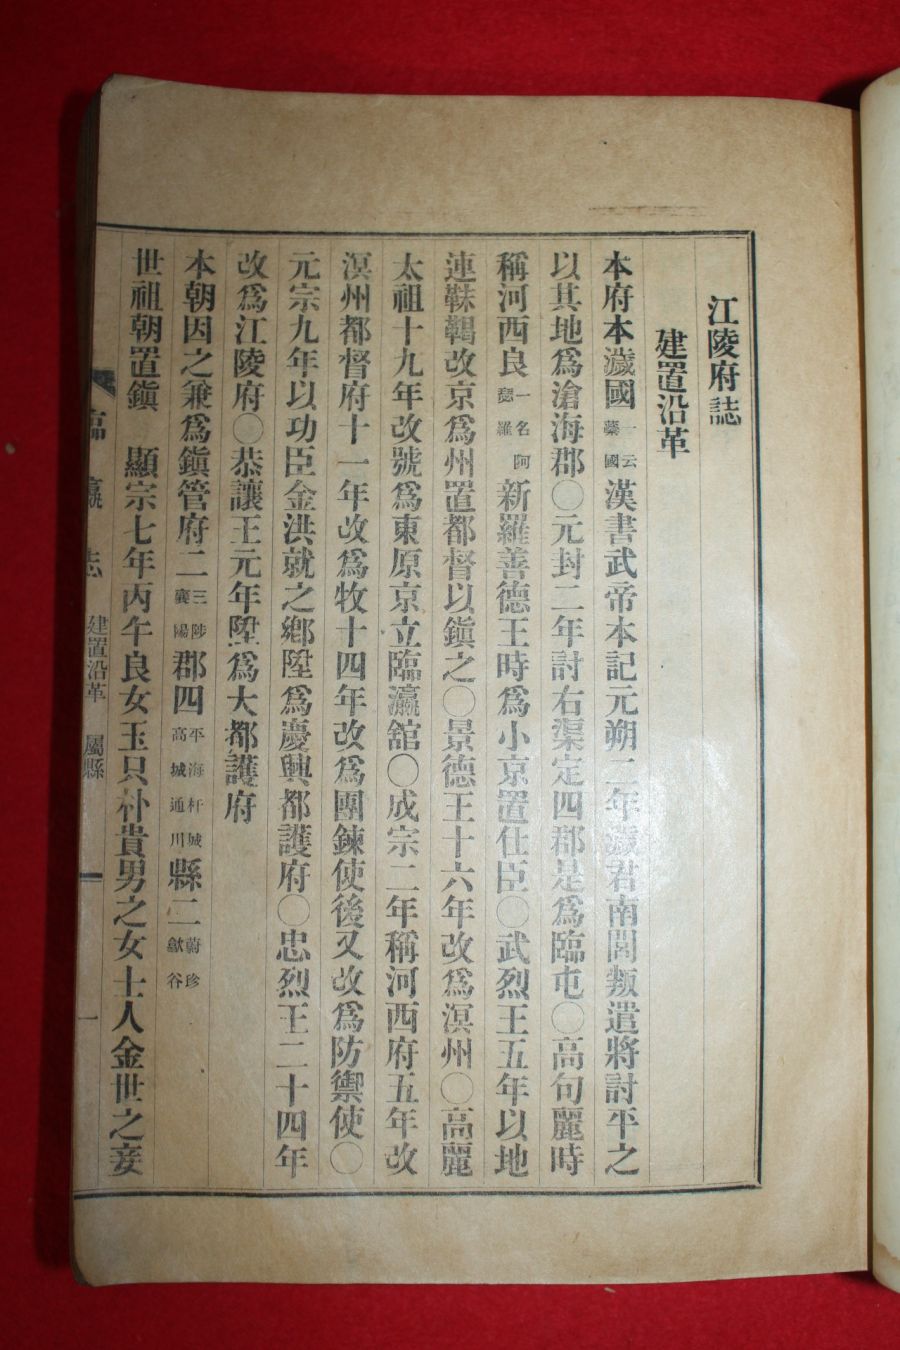 江陵府誌
建置沿革
本府本濊國一云蘂國漢書武帝本記元朔二年濊君南閭叛遣將討平之
以其地爲滄海郡〇元封二年討右渠定四郡是爲臨屯〇高句麗時
稱河西良一名阿瑟羅新羅善德王時爲小京置仕臣〇武烈王五年以地
連靺鞨改京爲州置都督以鎭之〇景德王十六年改爲溟州〇高麗
太祖十九年改號爲東原京立臨瀛舘〇成宗二年稱河西府五年改
溟州都督府十一年改爲牧十四年改爲團鍊使後又改爲防禦使〇
元宗九年以功臣金洪就之鄕陞爲慶興都護府〇忠烈王二十四年
改爲江陵府〇恭讓王元年陞爲大都護府
本朝因之兼爲鎭管府二三陟襄陽郡四平海杆城高城通川縣二蔚珍歙谷
世祖朝置鎭 顯宗七年丙午良女玉只朴貴男之女士人金世之妾
臨瀛誌 建置沿革 屬縣 一